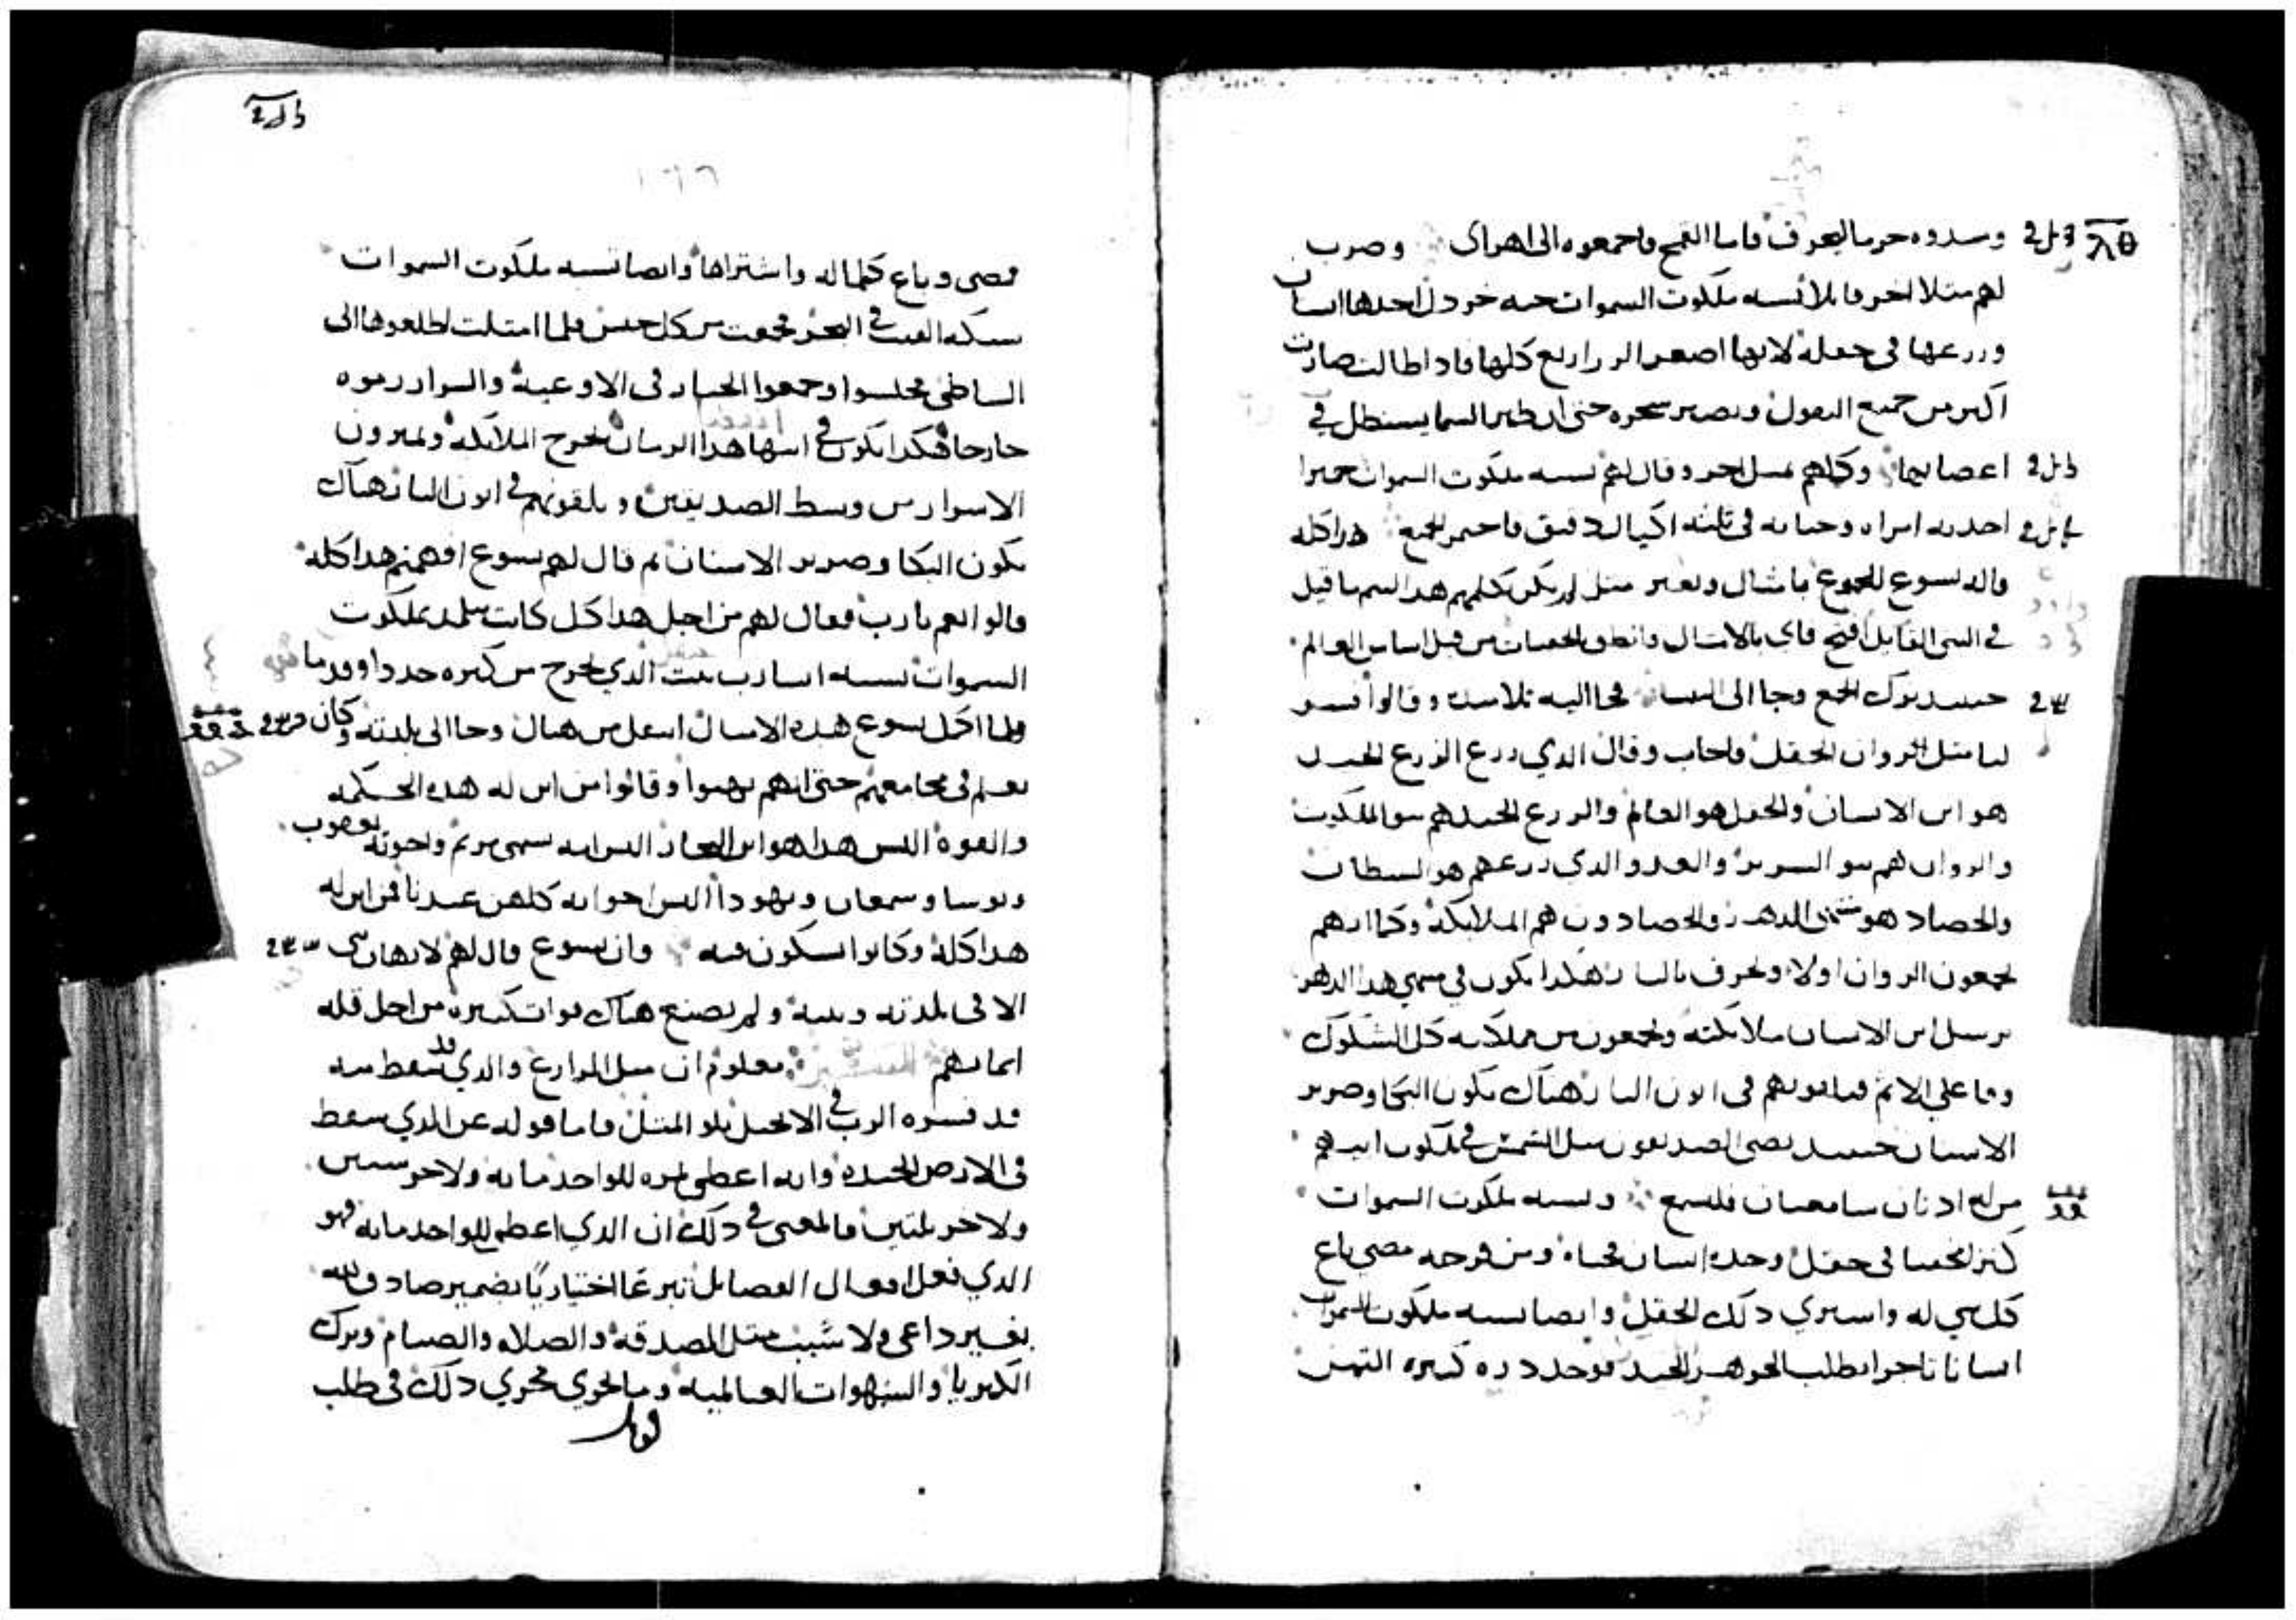 وسدوه حزما ليحرق فاما القمح فاجمعوه الى اهراي وضرب
لهم مثلا اخر قايلا تشبه ملكوت السموات حبه خردل اخدها انسان
وزرعها في حقله لانها اصغر الزراريع كلها فاذا طالت صارت
اكبر من جميع البقول وتصير شجره حتى ان طير السما يستظل في
اعصانها وكلمهم بمثل اخر وقال لهم تشبه ملكوت السموات خميرا
اخدته امراه وخباته في ثلثه اكيال دقيق فاختمر الجميع هدا كله
قاله يسوع للجموع بامثال وبغير مثل لم يكن يكلمهم هدا ليتم ما قيل
في النبي القايل افتح فاي بالامثال وانطق الخفيات من قبل اساس العالم
حينيد ترك الجمع وجا الى البيت فجا اليه تلاميده وقالوا فسر
لنا مثل الزوان الحقل فاجاب وقال الدي زرع الزرع الجيد
هو ابن الانسان والحقل هو العالم والزرع الجيد هم بنو الملكوت
والزوان هم بنو الشرير والعدو الدي زرعهم هو الشيطان
والحصاد هو منتهى الدهر والحصادون هم الملايكة وكما انهم
يجمعون الزوان اولا ويحرق بالنار هكدا يكون في منتهى هدا الدهر
يرسل ابن الانسان ملايكته ويجمعون من مملكته كل الشكوك
وفاعلي الاثم فيلقونهم في اتون النار هناك يكون البكا وصرير
الاسنان حينيد تضي الصديقون مثل الشمس في ملكوت ابيهم
من له ادنان سامعتان فليسمع وتشبه ملكوت السموات
كنزا مخفيا في حقل وجده انسان فخباه ومن فرحه مضى باع
كل شي له واشترى دلك الحقل وايضا تشبه ملكوت السموات
انسانا تاجرا يطلب الجوهر الجيد فوجد دره كبيره الثمن
فمضى وباع كلما له واشتراها وايضا تشبه ملكوت السموات
شبكه القيت في البحر فجمعت من كل جنس فلما امتلت اطلعوها الى
الشاطي فجلسوا وجمعوا الخيار في الاوعية والشرار رموه
خارجا فهكدا يكون في انتها هدا الزمان تخرج الملايكه ويميزون
الاشرار من وسط الصديقين ويلقونهم في اتون النار هناك
يكون البكا وصرير الاسنان ثم قال لهم يسوع افهمتم هدا كله
قالوا نعم يا رب فقال لهم من اجل هدا كل كاتب يتلمد لملكوت
السموات يشبه انسانا رب بيت الدي يخرج من كنزه جددا وقدما
ولما اكمل يسوع هده الامثال انتقل من هناك وجا الى بلدته وكان
يعلم في مجامعهم حتى انهم بهتوا وقالوا من اين له هده الحكمه
والقوة اليس هدا هو ابن النجار اليس امه تسمى مريم واخوته يعقوب
ويوسا وسمعان ويهودا اليس اخواته كلهن عندنا فمن اين له
هدا كله وكانوا يشكون فيه وان يسوع قال لهم لا يهان نبي
الا في بلدته وبيته ولم يصنع هناك قوات كثيره من اجل قله
ايمانهم التفسير معلوم ان مثل الزارع والدي قد سقط منه
قد فسره الرب في الانجيل يتلو المثل فاما قوله عن الدي سقط
في الارض الجيده وانه اعطى ثمره للواحد مايه ولاخر ستين
ولاخر ثلثين فالمعنى في دلك ان الدي اعطى للواحد مايه فهو
الدي فعل افعال الفضايل تبرعا اختياريا بضمير صادق لله
بغير داعي ولا سبب مثل الصدقه والصلاه والصيام وترك
الكبريا والشهوات العالميه وما يجري مجرى دلك في طلب